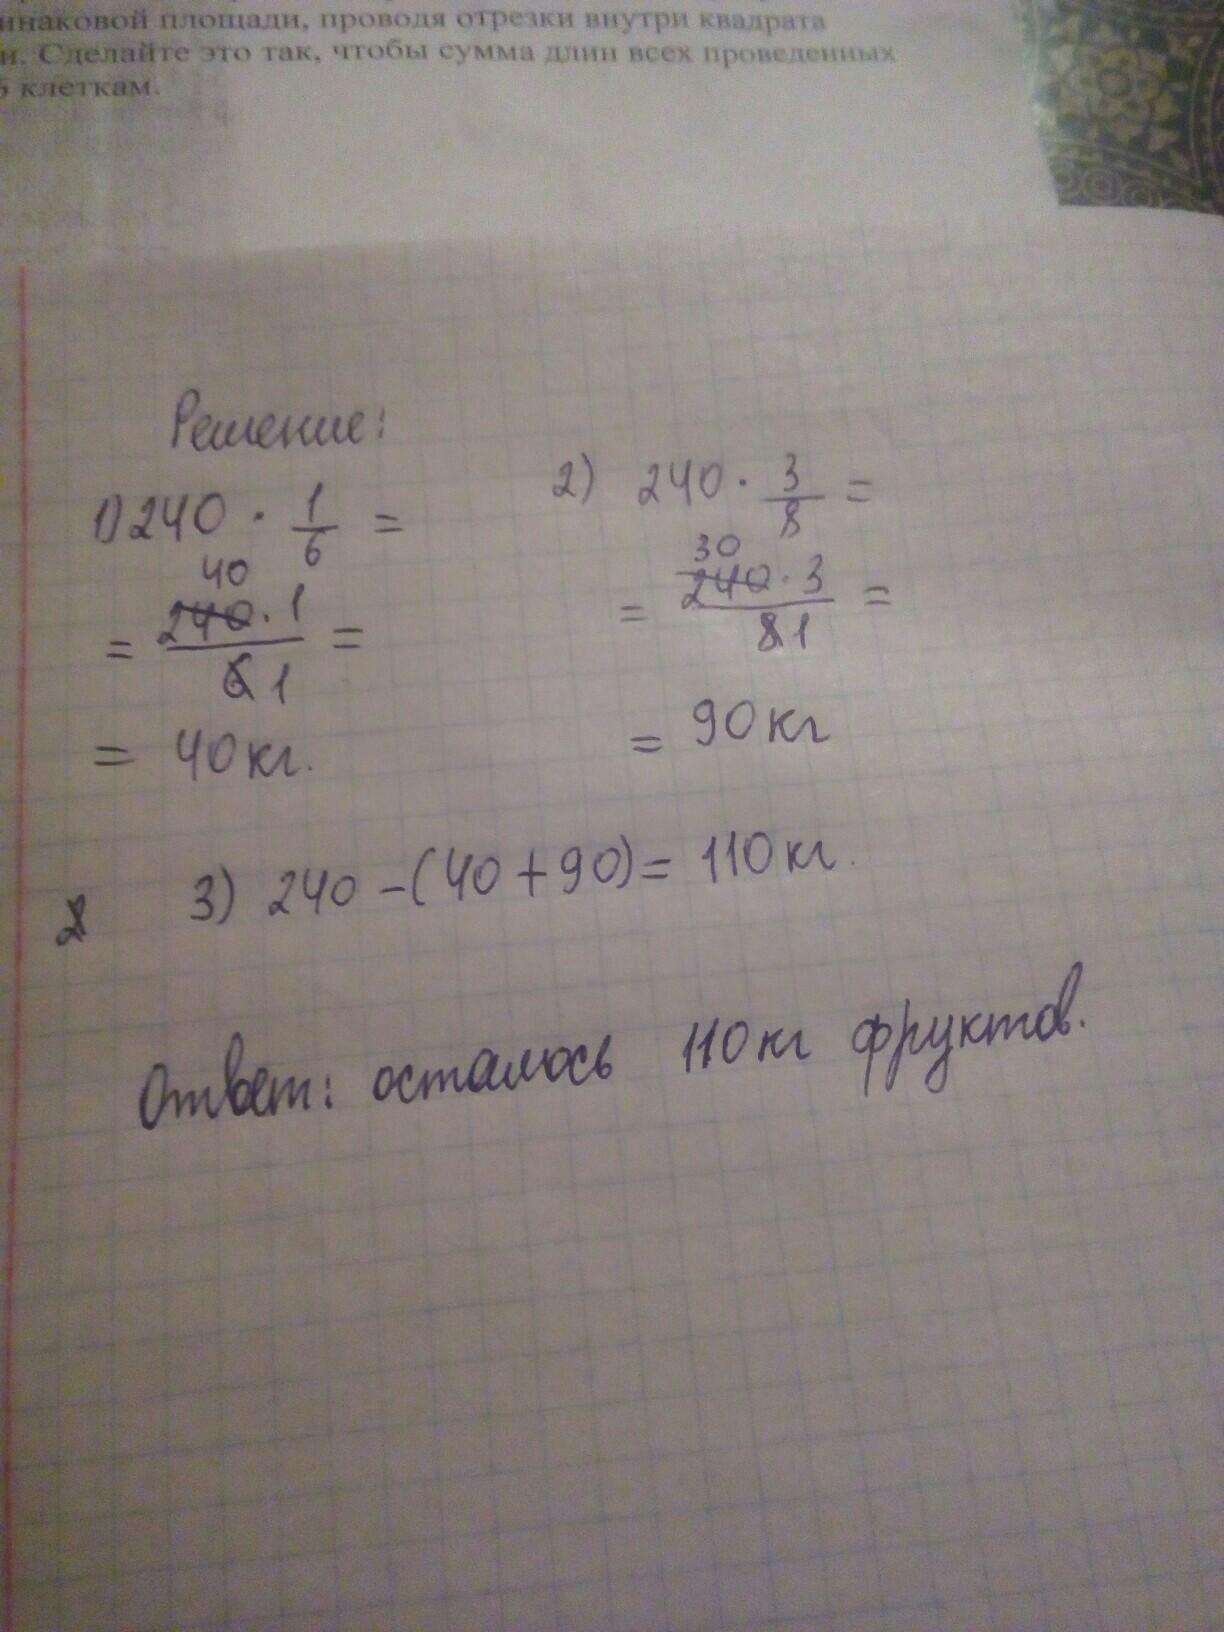 инаковой площади, проводя отрезки внутри квадрата
и. Сделайте это так, чтобы сумма длин всех проведенных
клеткам.
Решение:
1) 240 · 1/6 =
= 240 · 1 / 6 =
40
1
= 40 кг.
2) 240 · 3/8 =
= 240 · 3 / 8 =
30
1
= 90 кг
3) 240 - (40 + 90) = 110 кг.
Ответ: осталось 110 кг фруктов.